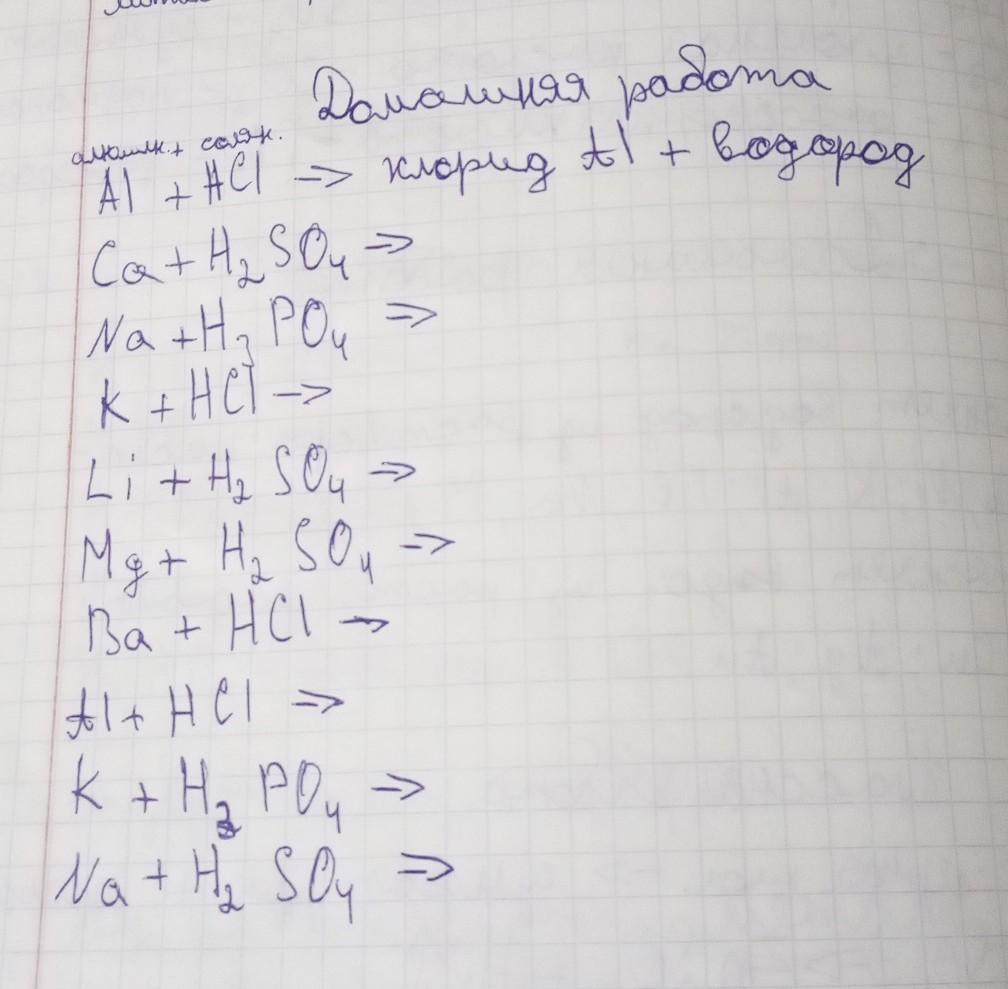 Домашняя работа
алюмин. + солян.
Al + HCl ⇒ хлорид Al + водород
Ca + H₂SO₄ ⇒
Na + H₃PO₄ ⇒
K + HCl →
Li + H₂SO₄ ⇒
Mg + H₂SO₄ ⇒
Ba + HCl →
Al + HCl ⇒
K + H₃PO₄ ⇒
Na + H₂SO₄ ⇒